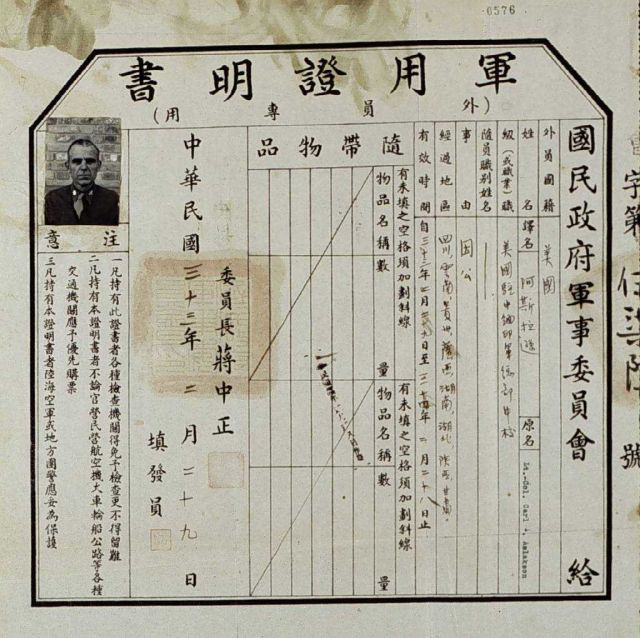 0576
軍用證明書
(外員專用)
字第
號
國民政府軍事委員會 給
外員國籍 美國
姓名 譯名 阿斯拉遜 原名 Lt.-Col. Carl
級(或職業)職
隨員職別姓名
事由 因公
經過地區 四川、雲南、貴州、廣西、湖南、湖北、陝西、甘肅
有效時間 自三十三年二月二十九日至三十四年二月二十八日止
隨帶物品
有未填之空格須加劃斜線
物品名稱數量
有未填之空格須加劃斜線
物品名稱數量
委員長蔣中正
填發員
中華民國三十三年二月二十九日
注意
一凡持有此證書者各種檢查機關得免予檢查更不得留難
二凡持有本證明書者不論官營民營航空機火車輪船公路等各種
交通機關應予優先購票
三凡持有本證明書者陸海空軍或地方團警應妥為保護